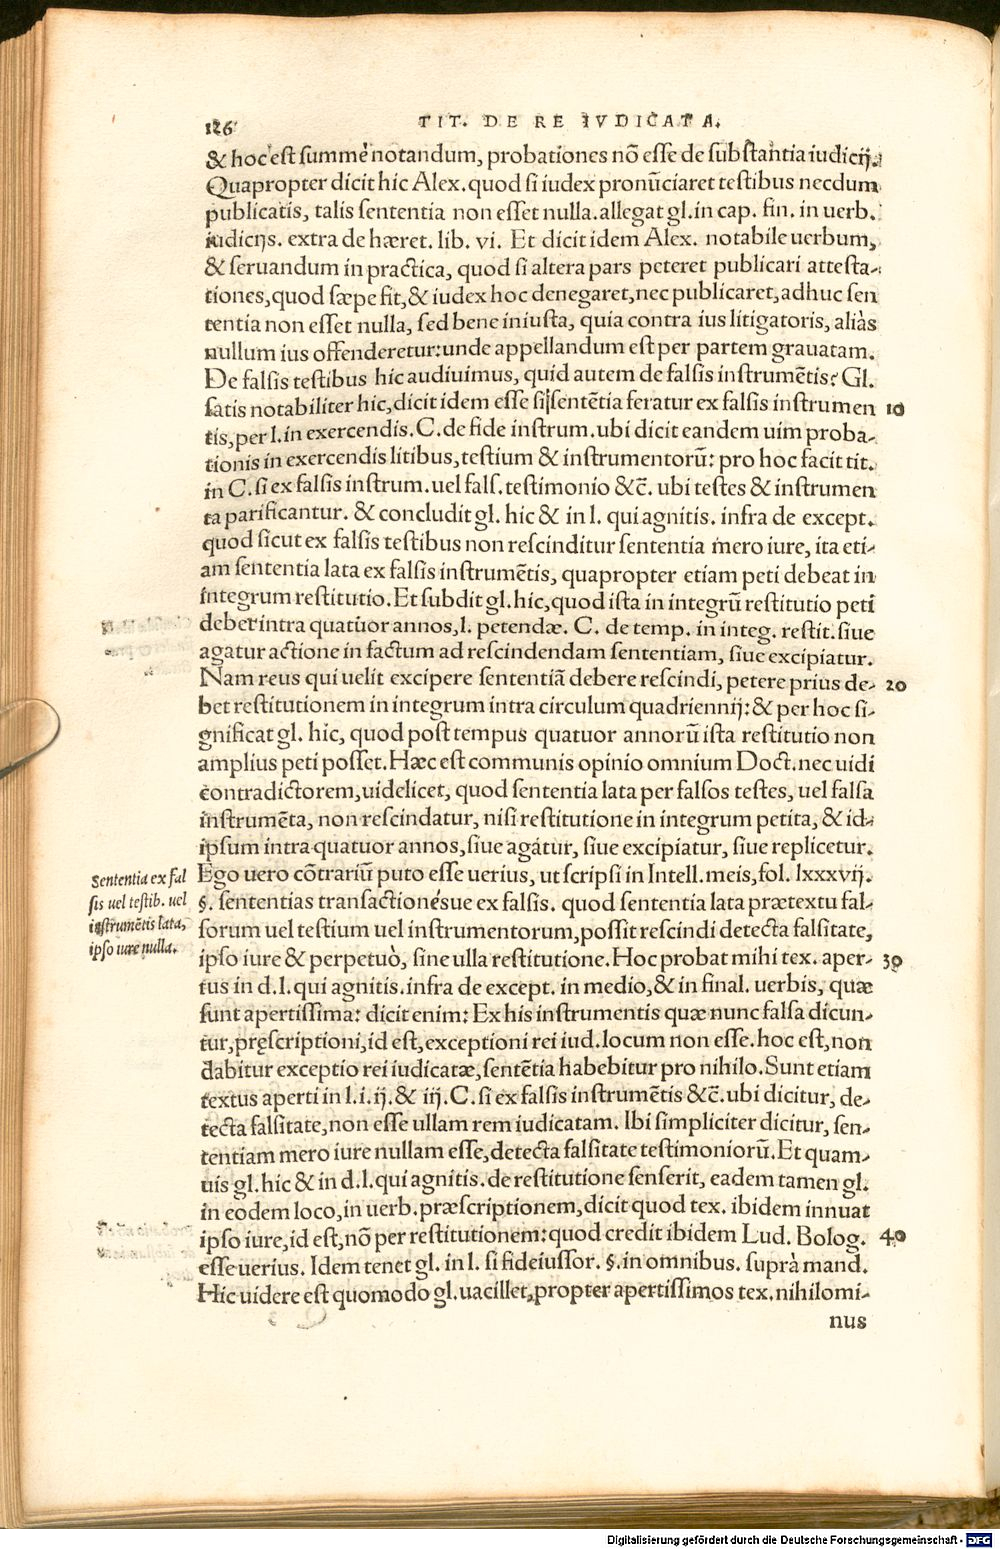 126 TIT. DE RE IVDICATA.
& hoc est summè notandum, probationes nõ esse de substantia iudicij.
Quapropter dicit hic Alex. quod si iudex pronũciaret testibus necdum
publicatis, talis sententia non esset nulla. allegat gl. in cap. fin. in uerb.
iudicijs. extra de hæret. lib. vi. Et dicit idem Alex. notabile uerbum,
& seruandum in practica, quod si altera pars peteret publicari attesta-
tiones, quod sæpe fit, & iudex hoc denegaret, nec publicaret, adhuc sen
tentia non esset nulla, sed bene iniusta, quia contra ius litigatoris, aliàs
nullum ius offenderetur: unde appellandum est per partem grauatam.
De falsis testibus hic audiuimus, quid autem de falsis instrumẽtis? Gl.
satis notabiliter hic, dicit idem esse si sentẽtia feratur ex falsis instrumen 10
tis, per l. in exercendis. C. de fide instrum. ubi dicit eandem uim proba-
tionis in exercendis litibus, testium & instrumentorũ: pro hoc facit tit.
in C. si ex falsis instrum. uel fals. testimonio &c̃. ubi testes & instrumen
ta parificantur. & concludit gl. hic & in l. qui agnitis. infra de except.
quod sicut ex falsis testibus non rescinditur sententia mero iure, ita eti-
am sententia lata ex falsis instrumẽtis, quapropter etiam peti debeat in
integrum restitutio. Et subdit gl. hic, quod ista in integrũ restitutio peti
debet intra quatuor annos, l. petendæ. C. de temp. in integ. restit. siue
agatur actione in factum ad rescindendam sententiam, siue excipiatur.
Nam reus qui uelit excipere sententiã debere rescindi, petere prius de- 20
bet restitutionem in integrum intra circulum quadriennij: & per hoc si-
gnificat gl. hic, quod post tempus quatuor annorũ ista restitutio non
amplius peti posset. Hæc est communis opinio omnium Doct. nec uidi
contradictorem, uidelicet, quod sententia lata per falsos testes, uel falsa
instrumẽta, non rescindatur, nisi restitutione in integrum petita, & id-
ipsum intra quatuor annos, siue agatur, siue excipiatur, siue replicetur.
Ego uero cõtrariũ puto esse uerius, ut scripsi in Intell. meis, fol. lxxxvij.
§. sententias transactionésue ex falsis. quod sententia lata prætextu fal-
forum uel testium uel instrumentorum, possit rescindi detecta falsitate,
ipso iure & perpetuò, sine ulla restitutione. Hoc probat mihi tex. aper- 30
tus in d. l. qui agnitis. infra de except. in medio, & in final. uerbis, quæ
sunt apertissima: dicit enim: Ex his instrumentis quæ nunc falsa dicun-
tur, pręscriptioni, id est, exceptioni rei iud. locum non esse. hoc est, non
dabitur exceptio rei iudicatæ, sentẽtia habebitur pro nihilo. Sunt etiam
textus aperti in l. i. ij. & iij. C. si ex falsis instrumẽtis &c̃. ubi dicitur, de-
tecta falsitate, non esse ullam rem iudicatam. Ibi simpliciter dicitur, sen-
tentiam mero iure nullam esse, detecta falsitate testimoniorũ. Et quam-
uis gl. hic & in d. l. qui agnitis. de restitutione senserit, eadem tamen gl.
in eodem loco, in uerb. præscriptionem, dicit quod tex. ibidem innuat
ipso iure, id est, nõ per restitutionem: quod credit ibidem Lud. Bolog. 40
esse uerius. Idem tenet gl. in l. si fideiussor. §. in omnibus. suprà mand.
Hic uidere est quomodo gl. uacillet, propter apertissimos tex. nihilomi-
nus
Sententia ex fal
sis uel testib. uel
instrumẽtis lata,
ipso iure nulla.
Digitalisierung gefördert durch die Deutsche Forschungsgemeinschaft - DFG